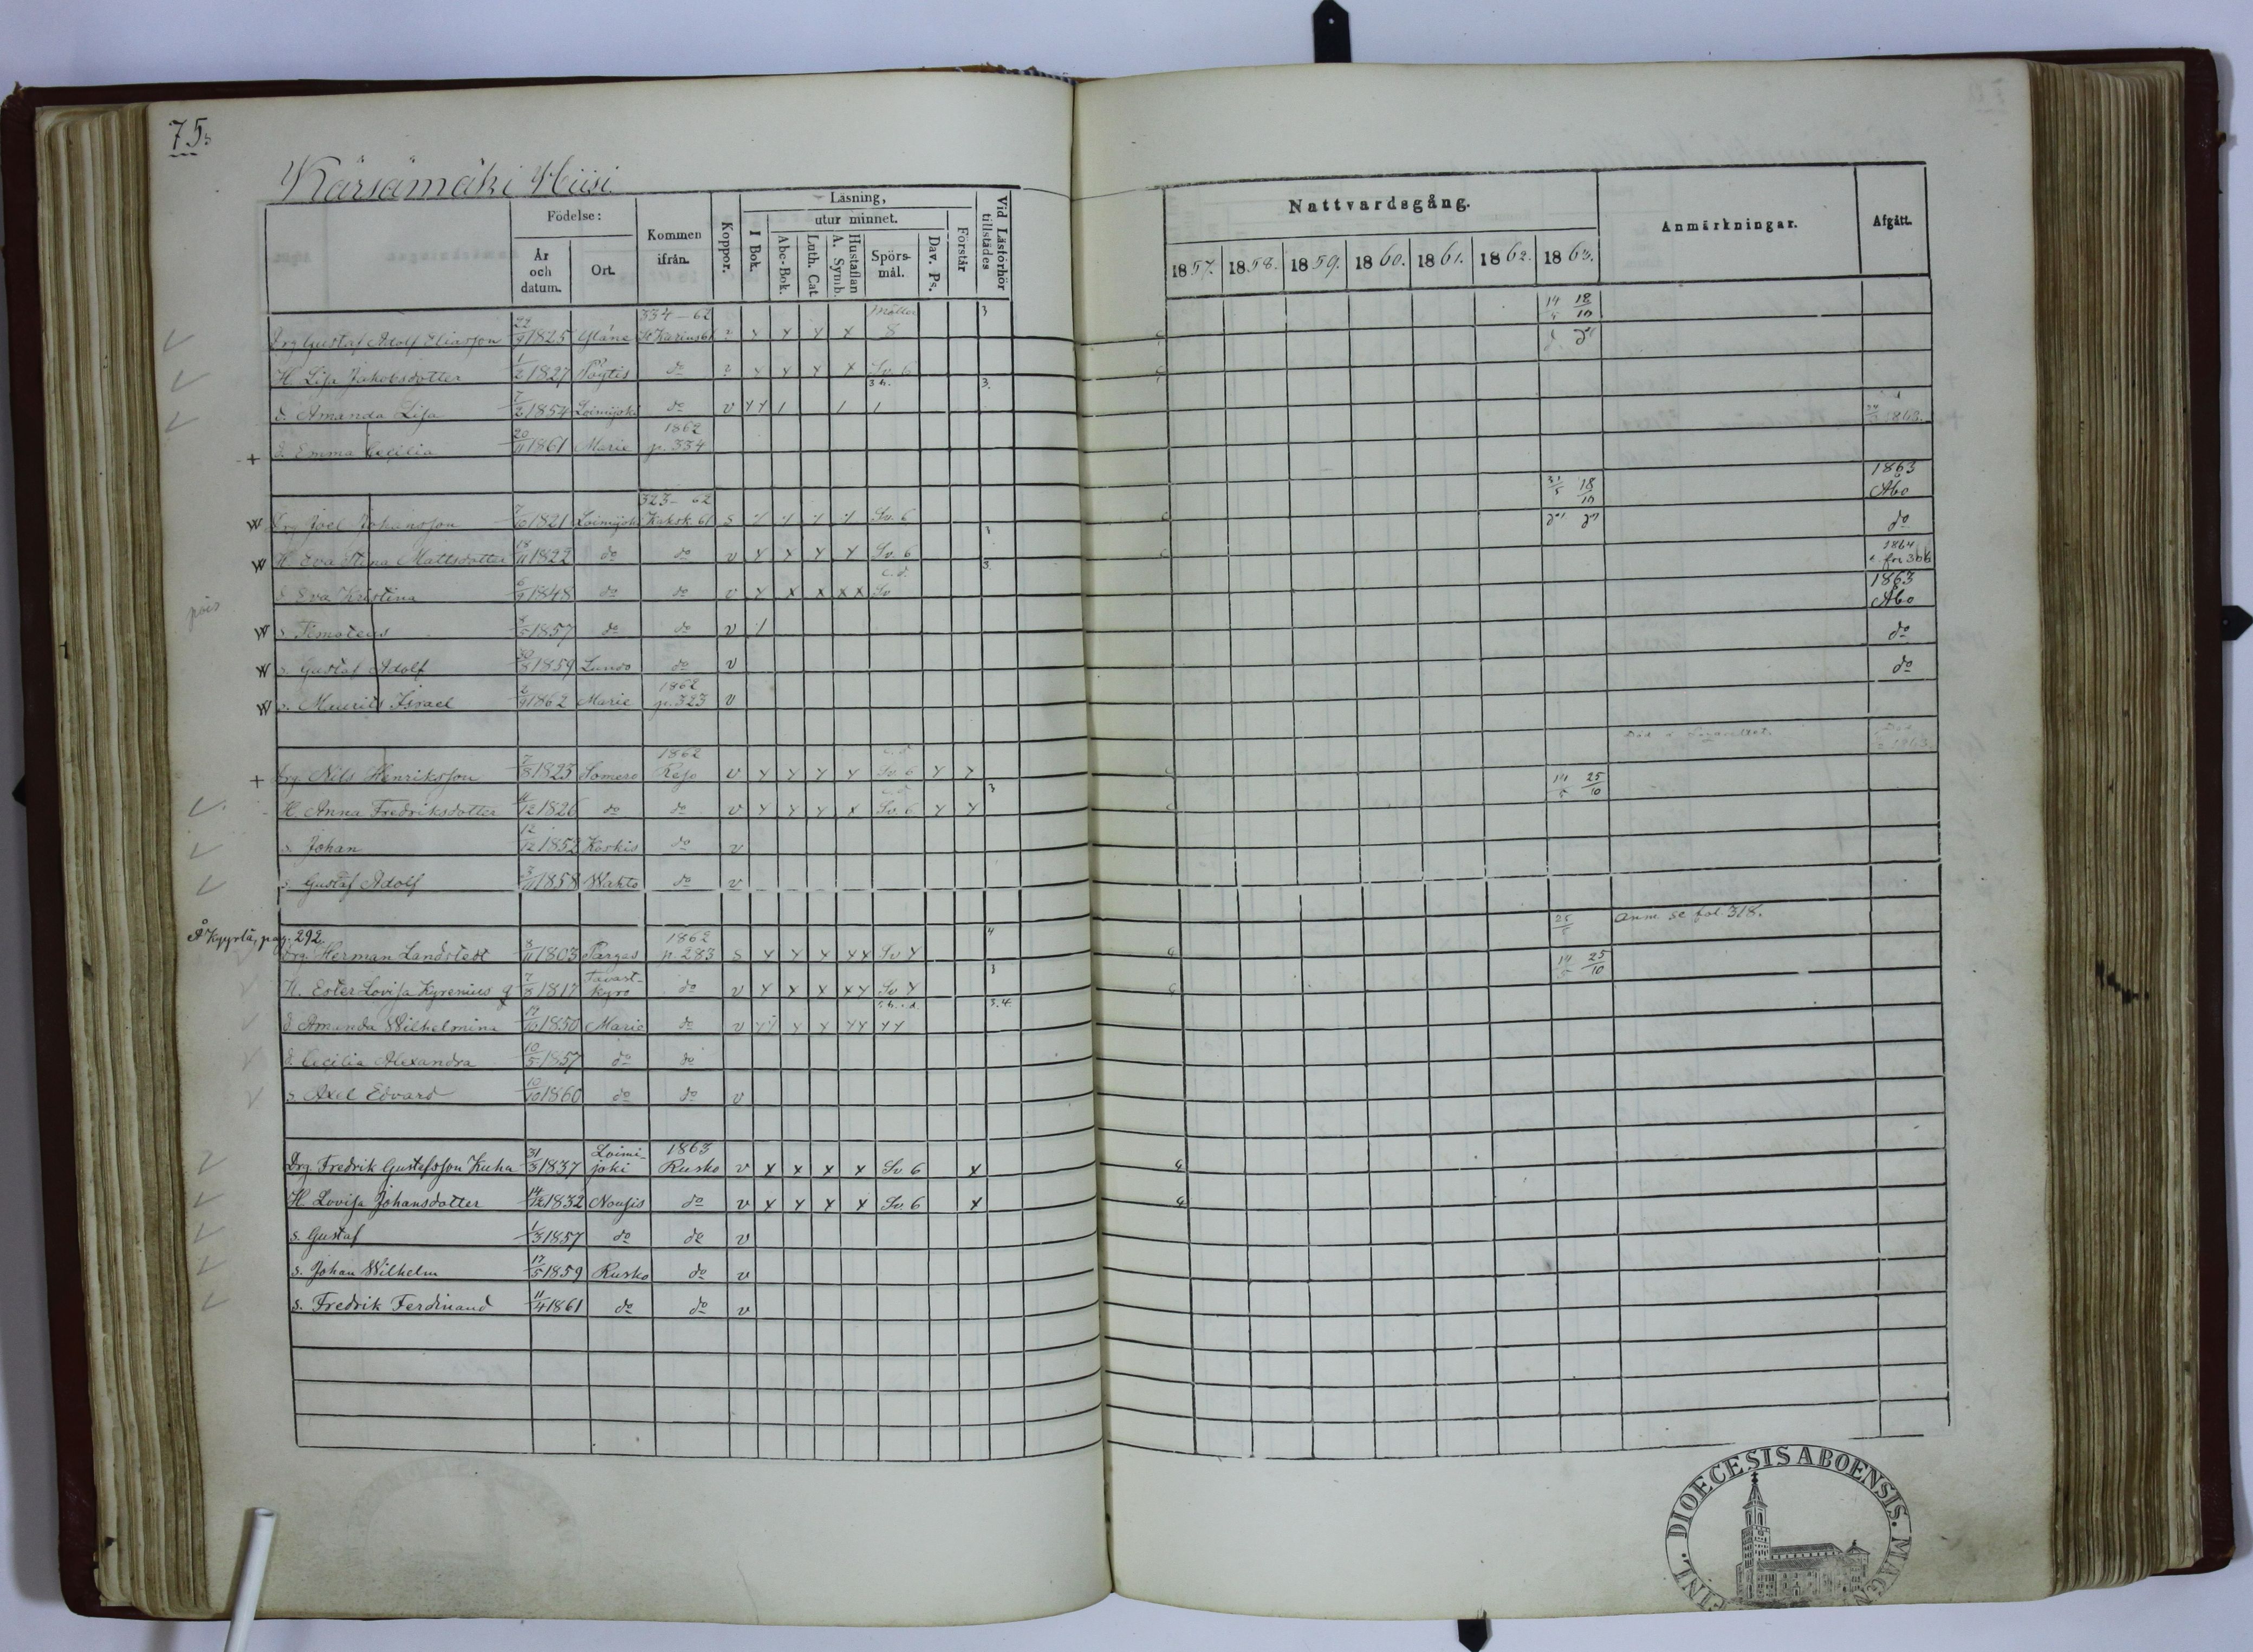 75.
Kärsämäki Hiisi
Födelse:
År och datum.
Ort.
Kommen ifrån.
Koppor.
Läsning,
I Bok.
utur minnet.
Abc-Bok.
Luth. Cat.
Hustaflan A. Symb.
Spörsmål.
Dav. Ps.
Förstår
Vid Läsförhör tillstädes
Nattvardsgång.
1857. 1858. 1859. 1860. 1861. 1862. 1863.
Anmärkningar.
Afgått.
Drg Gustaf Adolf Eliasson 22/9 1825 Yläne 334-62 St Karins 61 ? x x x x Möller 8 3 14/5 18/10
H. Lisa Jakobsdotter 1/2 1827 Pöytis do ? x x x x Sv. 6
d. Amanda Lisa 7/2 1854 Loimijoki do v 3.
+ d. Emma Cecilia 20/11 1861 Marie 1862 p. 334 1863.
W Drg Joel Johansson 7/10 1821 Loimijoki 323-62 Kaksk. 61 s Sv. 6 31/5 18/10 1863 Åbo
W H. Eva Stina Mattsdotter 18/11 1822 do do v x x x x Sv. 6 do
d. Eva Kristina 1848 do do v x x x x x Sv 3. 1864
pois
W s. Timoteus 1857 do do v 1863 Åbo
W s. Gustaf Adolf 1859 Lundo do v do
W s. Mauritz Israel 2/9 1862 Marie 1862 p. 323 v do
+ Drg. Nils Henriksson 7/8 1823 Somero 1862 Reso v x x x x c.d. Sv 6 x x Död 1863.
H. Anna Fredriksdotter 1826 do do v x x x x c.d. Sv. 6 x x 3 14/5 25/10
s. Johan 12/12 1852 Koskis do v
s. Gustaf Adolf 1858 Wahto do v
Å Kyyrlä, pag. 292.
Drg. Herman Landstedt 8/11 1803 Pargas 1862 p. 283 s x x x xx Sv x 4 25/5 anm. se fol. 318.
H. Ester Lovisa Kyrenius 7/8 1817 Tavastkyro do v x x x xx Sv x 14/5 25/10
d. Amanda Wilhelmina 1850 Marie do v 3.4.
d. Cecilia Alexandra 10/5 1857 do do
s. Axel Edvard 10/10 1860 do do v
Drg. Fredrik Gustafsson Kuha 31/3 1837 Loimijoki 1863 Rusko v x x x x Sv 6 x
H. Lovisa Johansdotter 1832 Nousis do v x x x x Sv. 6 x
s. Gustaf 1/3 1857 do do v
s. Johan Wilhelm 17/5 1859 Rusko do v
s. Fredrik Ferdinand 11/4 1861 do do v
DIOECESIS ABOENSIS.